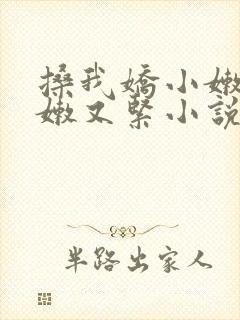 搡我嬌小嫩
嫩又緊小說
半路出家人